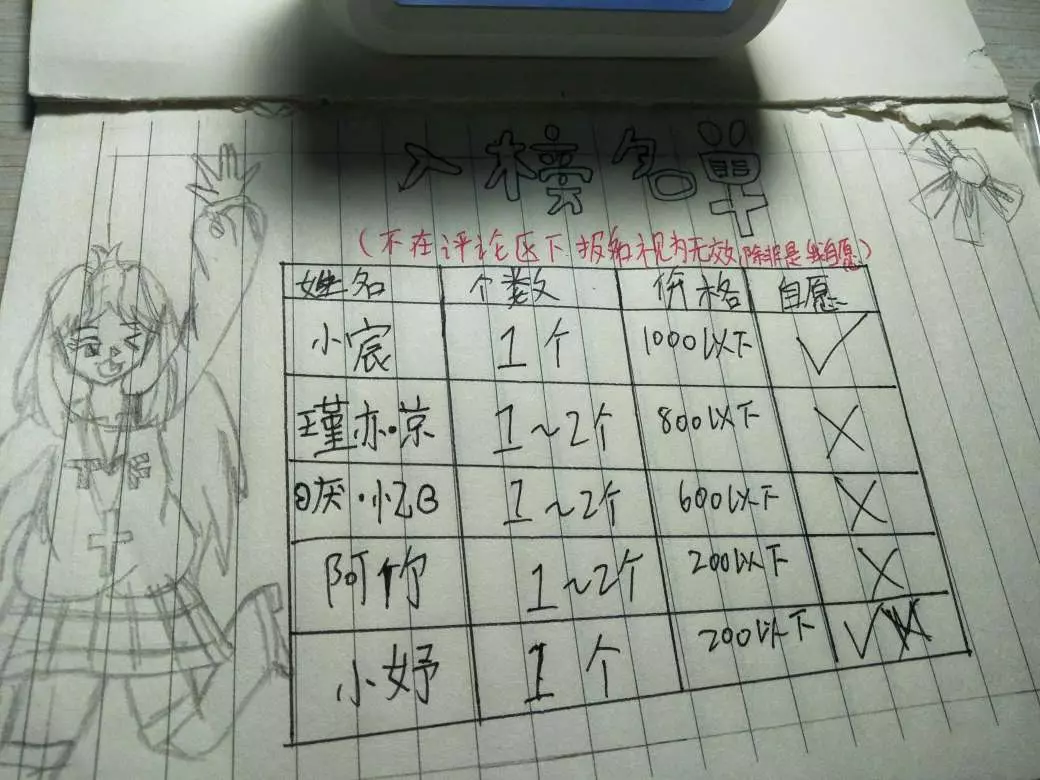 入模名單
(不在评论区下报名视为无效,除非是我自愿)
姓名 个数 价格 自愿
小宸 1个 1000以下 ✓
瑾亦·京 1~2个 800以下 ×
日厌·忆日 1~2个 600以下 ×
阿竹 1~2个 200以下 ×
小妤 1个 200以下 ✓